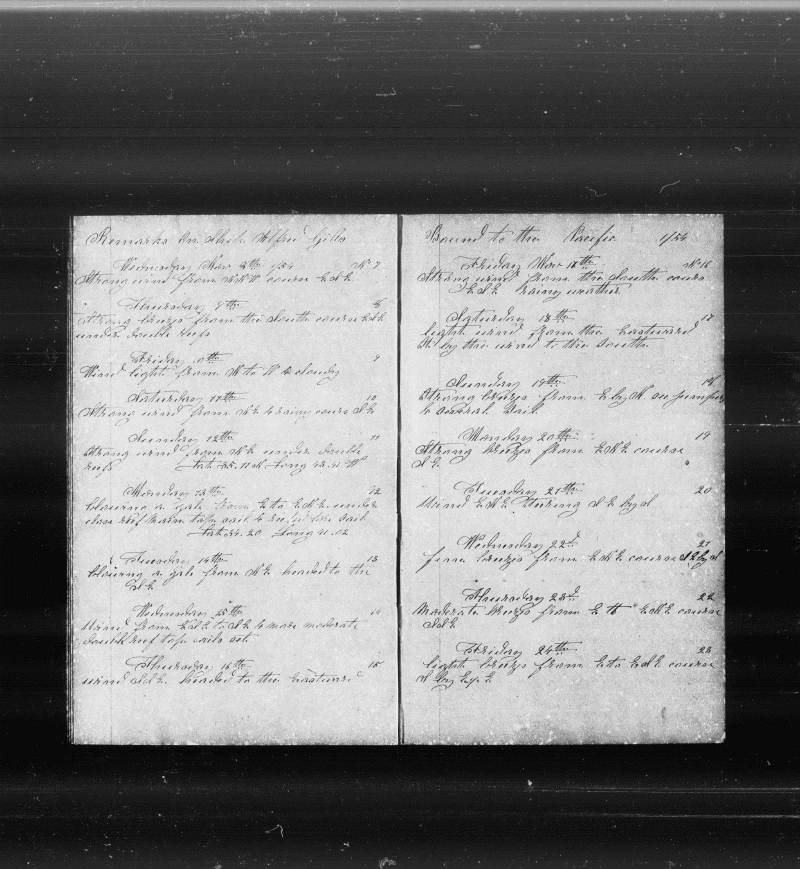 Remarks On Ship Alfred Gibs
Wednesday Nov 8th 1/54 No 7
Strong wind from course ESE
Thursday 9th 8
Strong breeze from the South course ESE
under double reefs
Friday 10th 9
Wind light from to W & cloudy
Saturday 11th 10
Strong wind from NE & rainy course SE
Sunday 12th 11
Strong wind from NE under double
reefs Lat 35.11 Long 43.41 W
Monday 13th 12
blowing a gale from E to ENE under
close reef main top sail & reefed fore sail
Lat 34.20 Long 41.02
Tuesday 14th 13
blowing a gale from NE headed to the
SE
Wednesday 15th 14
Wind from ESE to SE & more moderate
double reef top sails set
Thursday 16th 15
wind SSE headed to the Eastward
Bound to the Pacific 1/54
Friday Nov No 16
Strong wind from the South course
ESE rainy weather
Saturday 18th 17
light wind from the Eastward
by the wind to the South
Sunday 19th 18
Strong breeze from E by N
& sail
Monday 20th 19
Strong breeze from ENE course
SE
Tuesday 21th 20
Wind ENE Stering SE by S
Wednesday 22d 21
fine breeze from ENE course SE by S
Thursday 23d 22
Moderate breeze from E to ENE course
SSE
Friday 24th 23
light breeze from E to ESE course
S by E